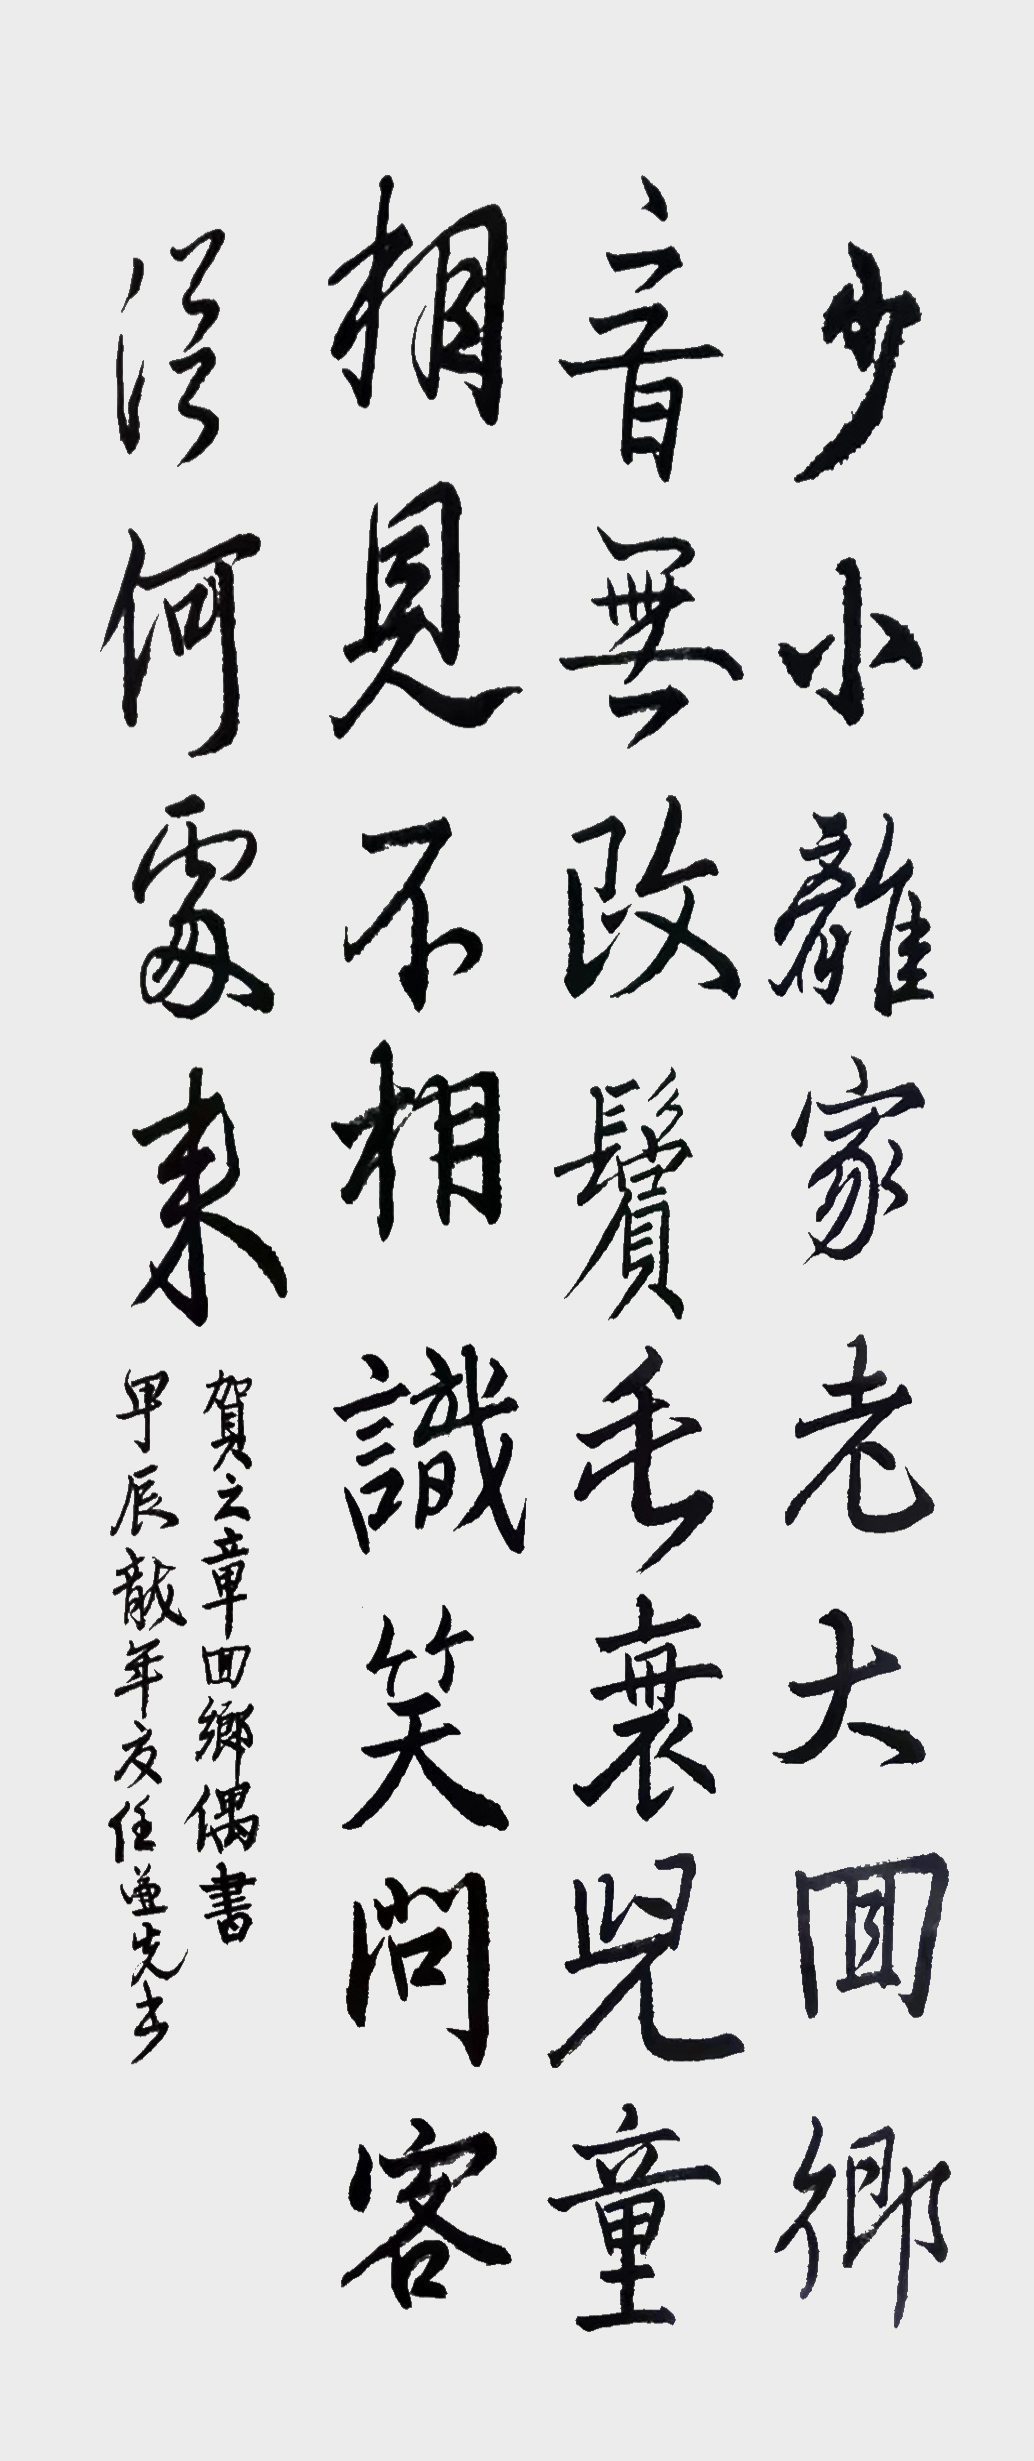 少小離家老大回鄉
音無改鬢毛衰兒童
相見不相識笑問客
從何處來
賀之章回鄉偶書
甲辰龍年夏任先书